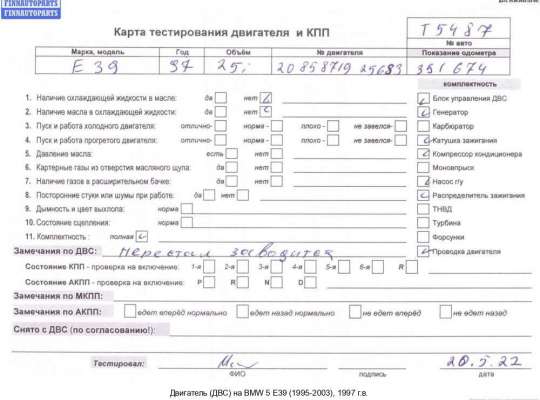 FINNAUTOPARTS
FINNAUTOPARTS
Карта тестирования двигателя и КПП
Т5487
№ авто
Марка, модель Год Объём № двигателя Показание одометра
E39 97 25i 20858719 25683 351674
комплектность
1. Наличие охлаждающей жидкости в масле: да нет
Блок управления ДВС
2. Наличие масла в охлаждающей жидкости: да нет
Генератор
3. Пуск и работа холодного двигателя: отлично- норма - плохо - не завелся-
Карбюратор
4. Пуск и работа прогретого двигателя: отлично- норма - плохо - не завелся-
Катушка зажигания
5. Давление масла: есть нет
Компрессор кондиционера
6. Картерные газы из отверстия масляного щупа: да нет
Моновпрыск
7. Наличие газов в расширительном бачке: да нет
Насос г/у
8. Посторонние стуки или шумы при работе: да нет
Распределитель зажигания
9. Дымность и цвет выхлопа: норма
ТНВД
10. Состояние сцепления: норма
Турбина
11. Комплектность : полная
Форсунки
Замечания по ДВС: перестал заводится
Проводка двигателя
Состояние КПП - проверка на включение: 1-я 2-я 3-я 4-я 5-я 6-я R
Состояние АКПП - проверка на включение: P R N D
Замечания по МКПП:
Замечания по АКПП: едет вперёд нормально едет назад нормально не едет вперёд не едет назад
Снято с ДВС (по согласованию!):
Тестировал: 20.5.22
ФИО подпись дата
Двигатель (ДВС) на BMW 5 E39 (1995-2003), 1997 г.в.